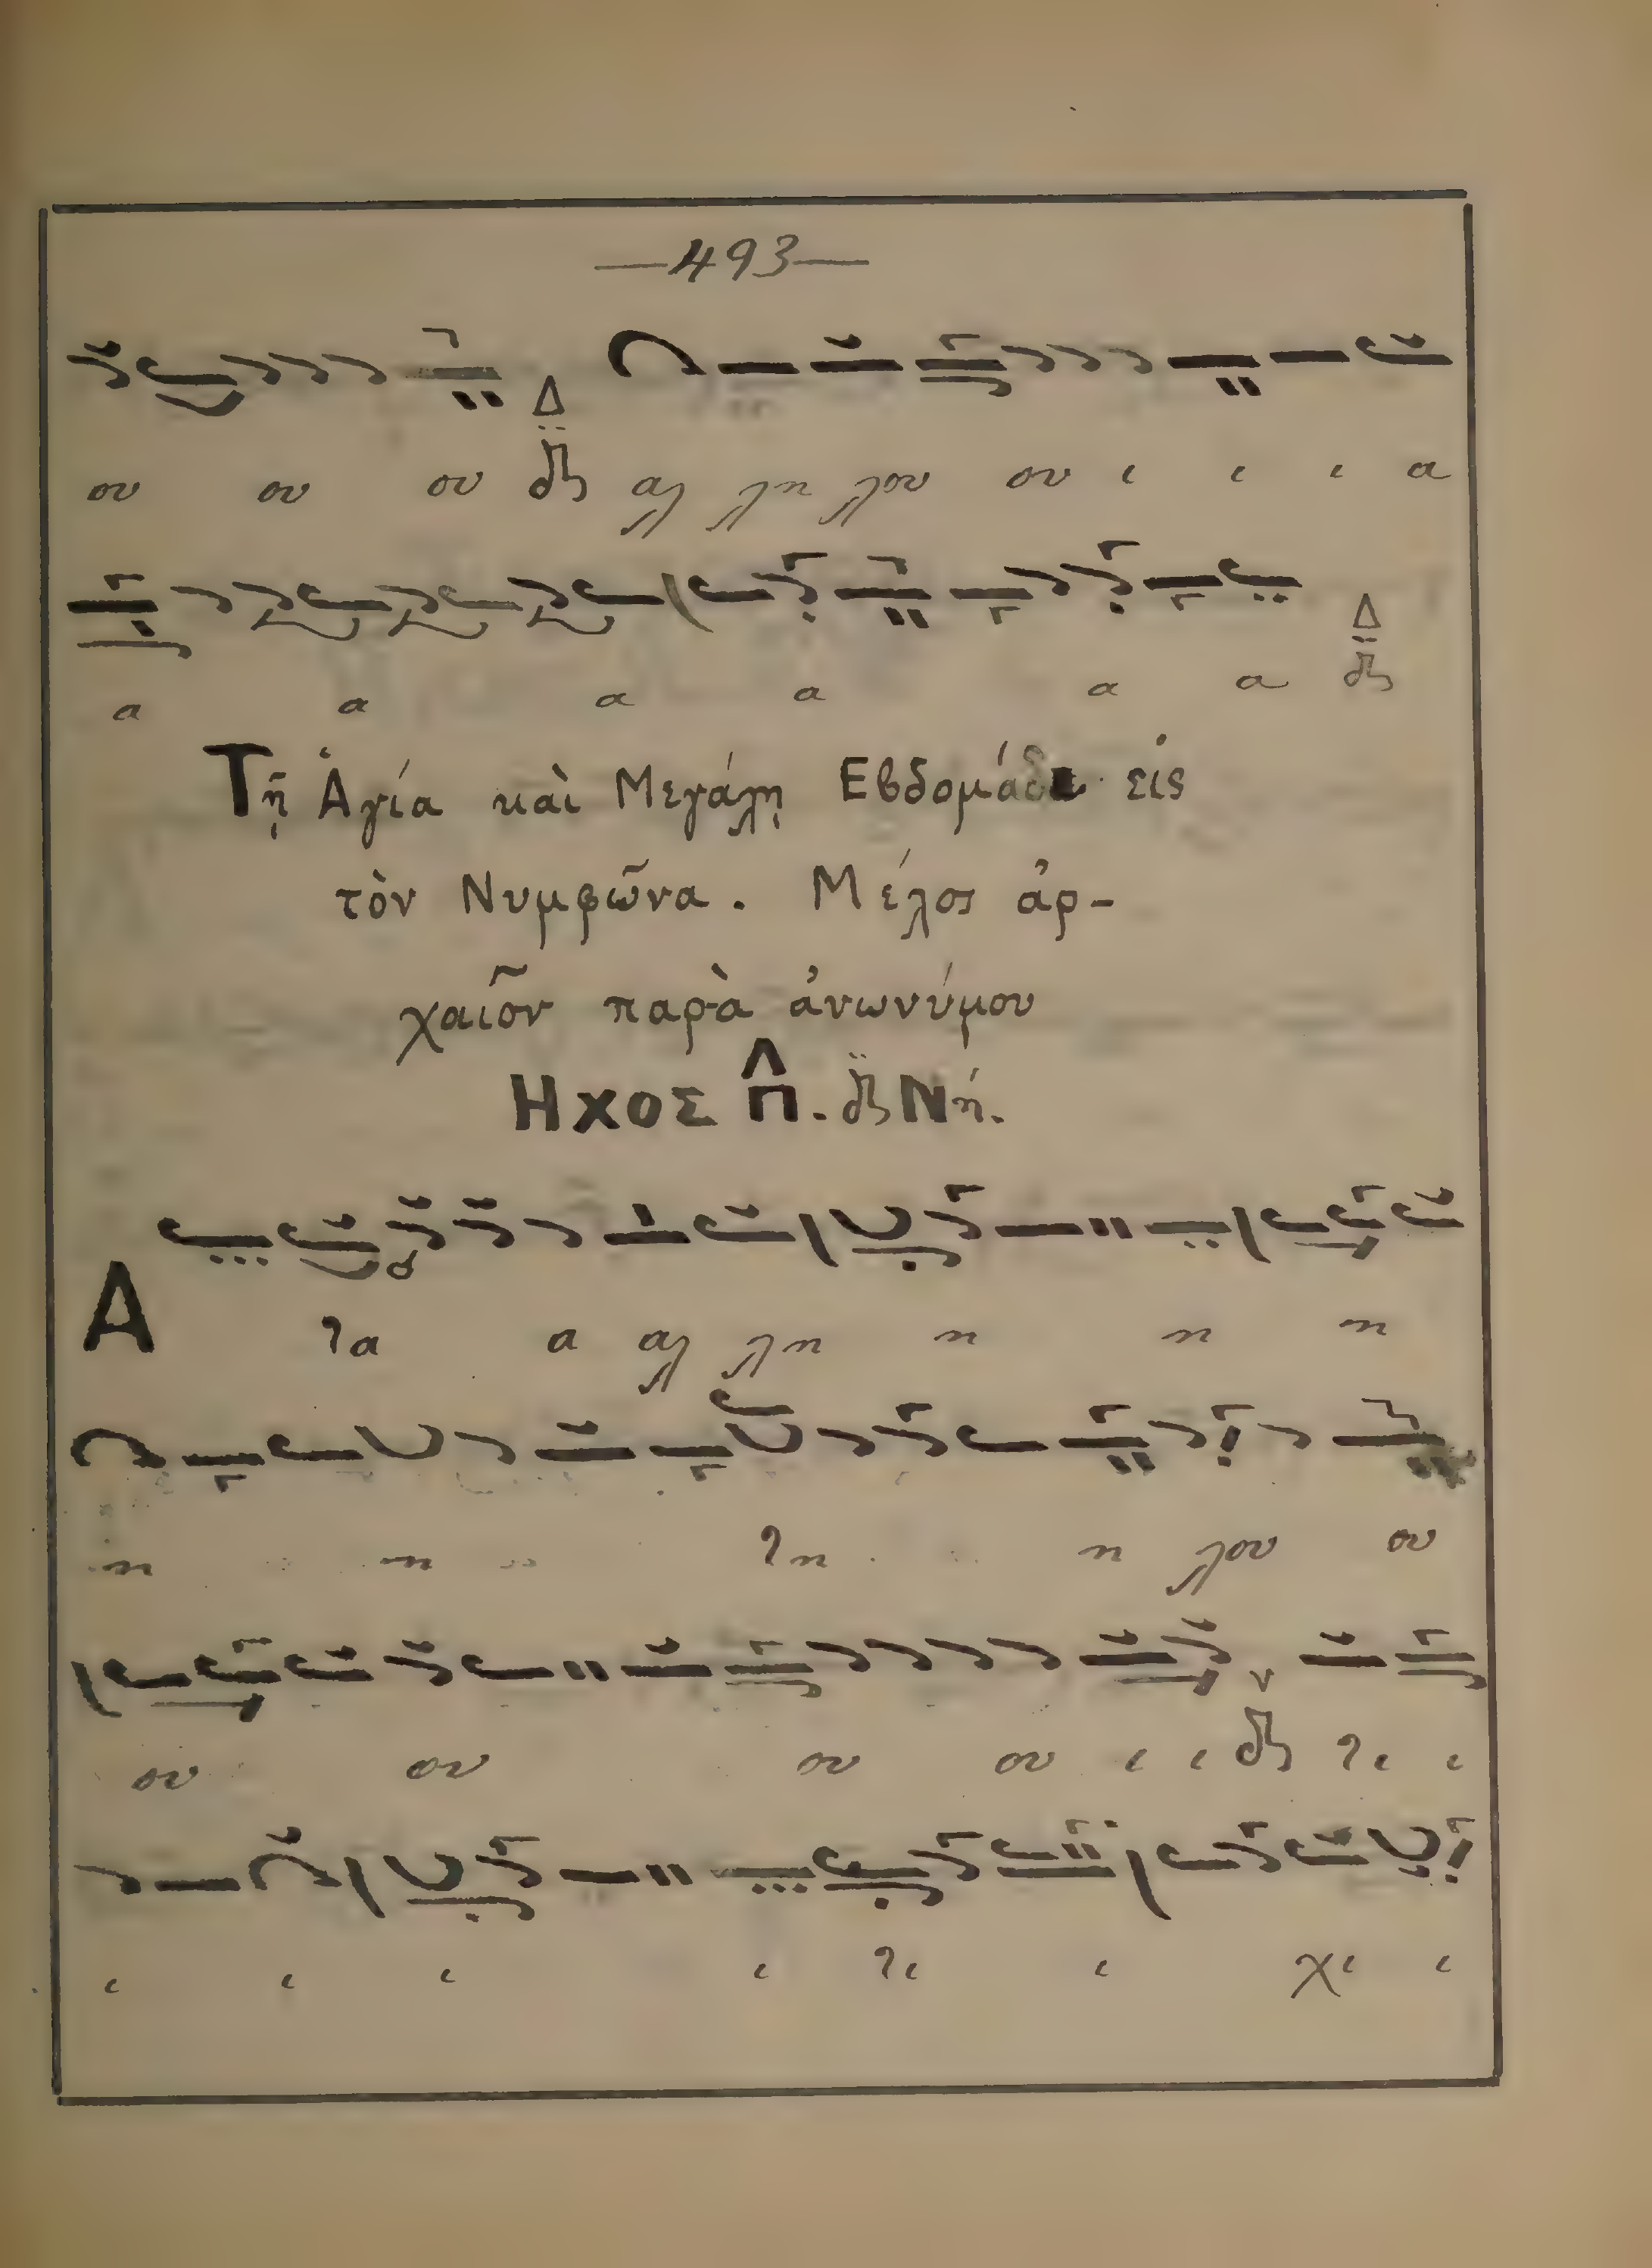 —493—
ου ου ου Δ αλ λη λου ου ι ι ι α
α α α α α α Δ
Τῇ Ἁγία καὶ Μεγάλῃ Εβδομάδι εἰς
τὸν Νυμφῶνα. Μέλος ἀρ-
χαῖον παρὰ ἀνωνύμου
ΗΧΟΣ Νή.
Α γα α αλ λη η η η
η η γη η λου ου
ου ου ου ου ι ι γι ι
ι ι ι ι γι ι χι ι